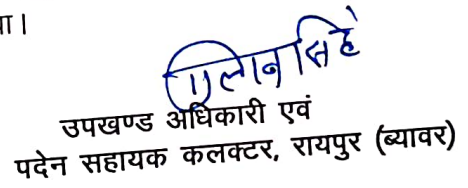 ा।
सिंह
उपखण्ड अधिकारी एवं
पदेन सहायक कलक्टर, रायपुर (ब्यावर)